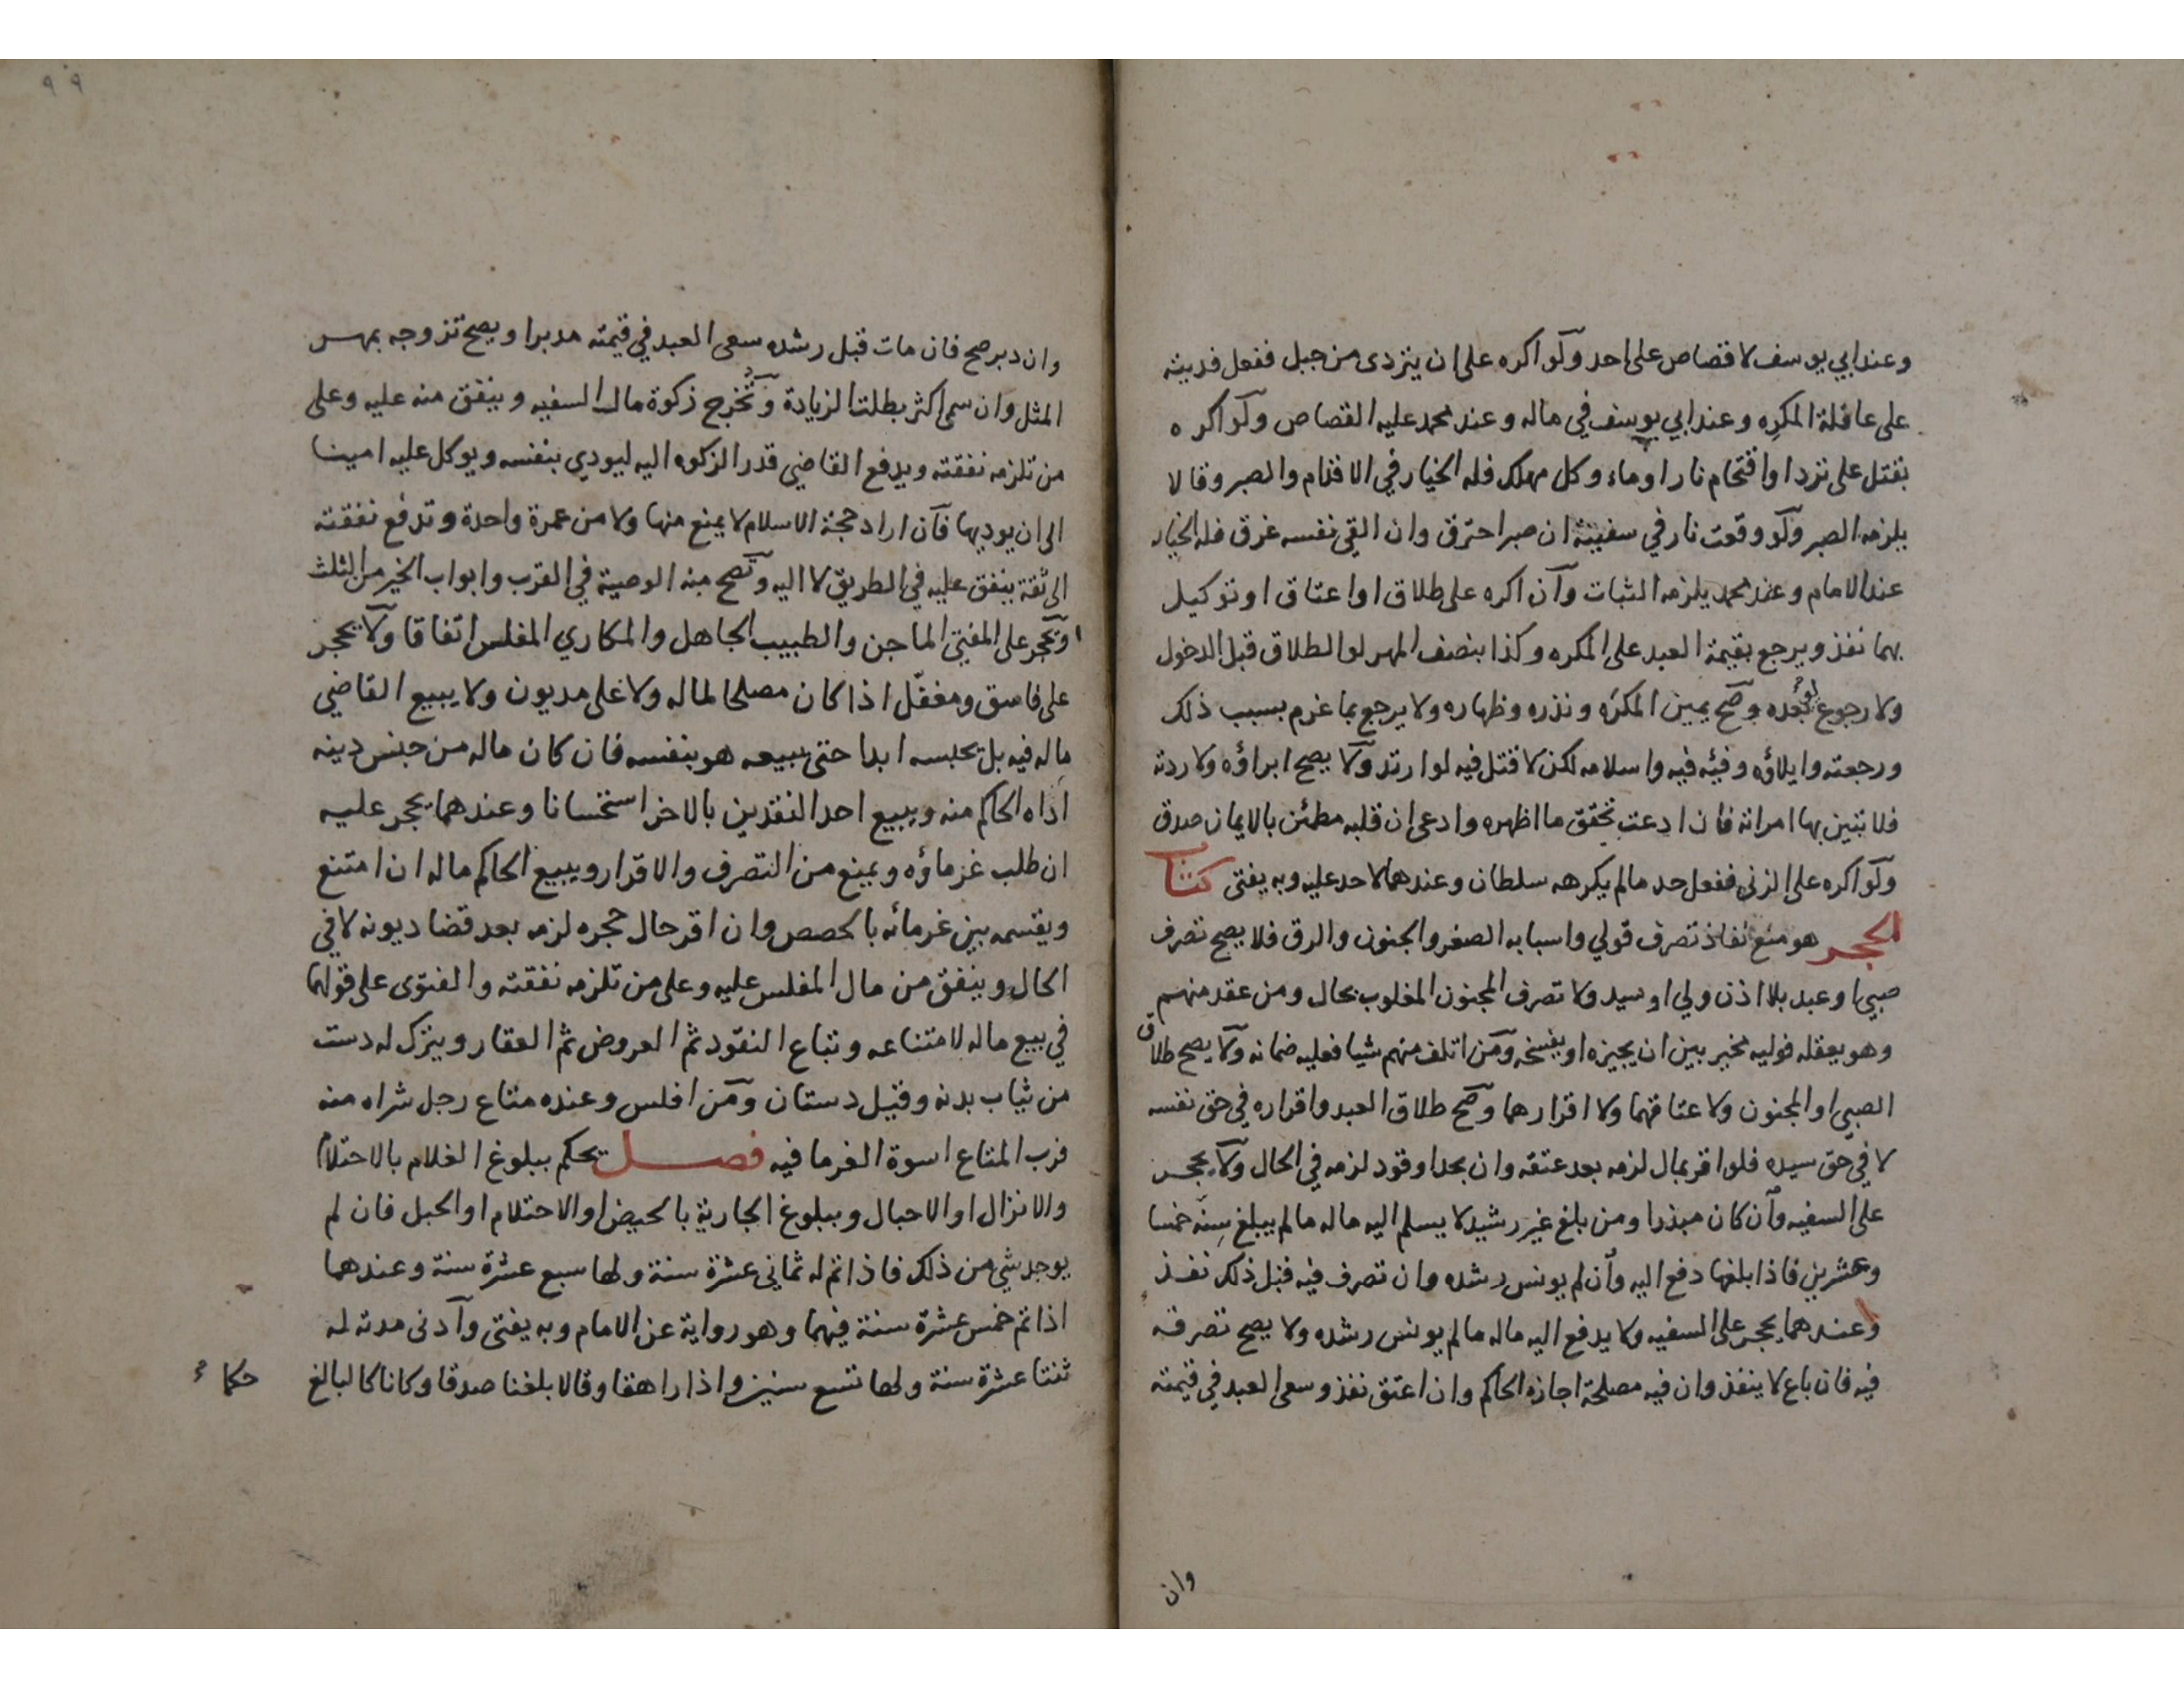 وعند ابي يوسف لا قصاص على احد ولو اكره على ان يتردى من جبل ففعل فديته
على عاقلة المكرِه وعند ابي يوسف في ماله وعند محمد عليه القصاص ولو اكره
بقتل على ترد او اقتحام نار او ماء وكل مهلك فله الخيار في الاقدام والصبر وقالا
يلزمه الصبر ولو وقعت نار في سفينة ان صبر احترق وان القى نفسه غرق فله الخيار
عند الامام وعند محمد يلزمه الثبات وان اكره على طلاق او اعتاق او توكيل
بهما نفذ ويرجع بقيمة العبد على المكره وكذا بنصف المهر لو الطلاق قبل الدخول
ولا رجوع لو بعده وصح يمين المكرَه ونذره وظهاره ولا يرجع بما غرم بسبب ذلك
ورجعته وايلاؤه وفيئه فيه واسلامه لكن لا قتل فيه لو ارتد ولا يصح ابراؤه ولا ردته
فلا تبين بها امراته فان ادعت تحقق ما اظهره وادعى ان قلبه مطمئن بالايمان صدق
ولو اكره على الزنى ففعل حد مالم يكرهه سلطان وعندهما لا حد عليه وبه يفتى كتاب
الحجر هو منع نفاذ تصرف قولي واسبابه الصغر والجنون والرق فلا يصح تصرف
صبي او عبد بلا اذن ولي او سيد ولا تصرف المجنون المغلوب بحال ومن عقد منهم
وهو يعقله فوليه مخير بين ان يجيزه او يفسخه ومن اتلف منهم شيا فعليه ضمانه ولا يصح طلاق
الصبي او المجنون ولا عتاقهما ولا اقرارهما وصح طلاق العبد واقراره في حق نفسه
لا في حق سيده فلو اقر بمال لزمه بعد عتقه وان بحد او قود لزمه في الحال ولا يحجر
على السفيه وان كان مبذرا ومن بلغ غير رشيد لا يسلم اليه ماله مالم يبلغ سِنّه خمسا
وعشرين فاذا بلغها دفع اليه وان لم يونس رشده وان تصرف فيه قبل ذلك نفذ
وعندهما يحجر على السفيه ولا يدفع اليه ماله مالم يونس رشده ولا يصح تصرفه
فيه فان باع لا ينفذ وان فيه مصلحة اجازه الحاكم وان اعتق نفذ وسعى العبد في قيمته
وان
٩٩
وان دبر صح فان مات قبل رشده سعى العبد في قيمته مدبرا ويصح تزوجه بمهر
المثل وان سمى اكثر بطلت الزيادة وتُخرج زكوة مال السفيه وينفق منه عليه وعلى
من تلزمه نفقته ويدفع القاضي قدر الزكوه اليه ليودي بنفسه ويوكل عليه امينا
الى ان يوديها فان اراد حجة الاسلام لا يمنع منها ولا من عمرة واحدة وتدفع نفقته
الى ثقة ينفق عليه في الطريق لا اليه وتصح منه الوصية في القرب وابواب الخير من الثلث
ويحجر على المفتي الماجن والطبيب الجاهل والمكاري المفلس اتفاقا ولا يحجر
على فاسق ومغفّل اذا كان مصلحا لماله ولا على مديون ولا يبيع القاضي
ماله فيه بل يحبسه ابدا حتى يبيعه هو بنفسه فان كان ماله من جنس دينه
اداه الحاكم منه ويبيع احد النقدين بالاخر استحسانا وعندهما يحجر عليه
ان طلب غرماؤه ويمنع من التصرف والاقرار ويبيع الحاكم ماله ان امتنع
ويقسمه بين غرمائه بالحصص وان اقر حال حجره لزمه بعد قضا ديونه لا في
الحال وينفق من مال المفلس عليه وعلى من تلزمه نفقته والفتوى على قولهما
في بيع ماله لامتناعه وتباع النقود ثم العروض ثم العقار ويترك له دست
من ثياب بدنه وقيل دستان ومن افلس وعنده متاع رجل شراه منه
فرب المتاع اسوة الغرما فيه فصل يحكم ببلوغ الغلام بالاحتلام
والانزال او الاحبال وببلوغ الجارية بالحيض او الاحتلام او الحبل فان لم
يوجد شي من ذلك فاذا تم له ثماني عشرة سنة ولها سبع عشرة سنة وعندهما
اذا تم خمس عشرة سنة فيهما وهو رواية عن الامام وبه يفتى وادنى مدته له
ثنتا عشرة سنة ولها تسع سنين واذا راهقا وقالا بلغنا صدقا وكانا كالبالغ
حكما